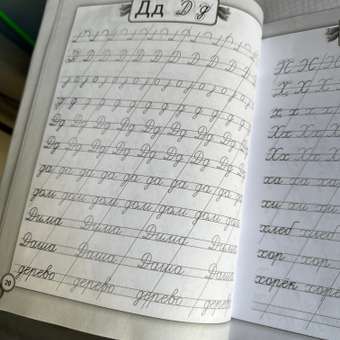 Дд Д д
Д Д Д Д Д Д Д Д Д Д
д д д д д д д д д д
Дд Дд Дд Дд Дд Дд Дд Дд
Дд Дд Дд Дд Дд Дд Дд Дд
да да да да да да да да
дом дом дом дом дом дом
Дима Дима Дима Дима
Даша Даша Даша Даша
дерево дерево дерево дерево
20
Х Х Х
х х х х
Хх Хх Хх
Хх Хх Хх
ха ха ха
хи хи хи
хлеб
хор хор
хорек